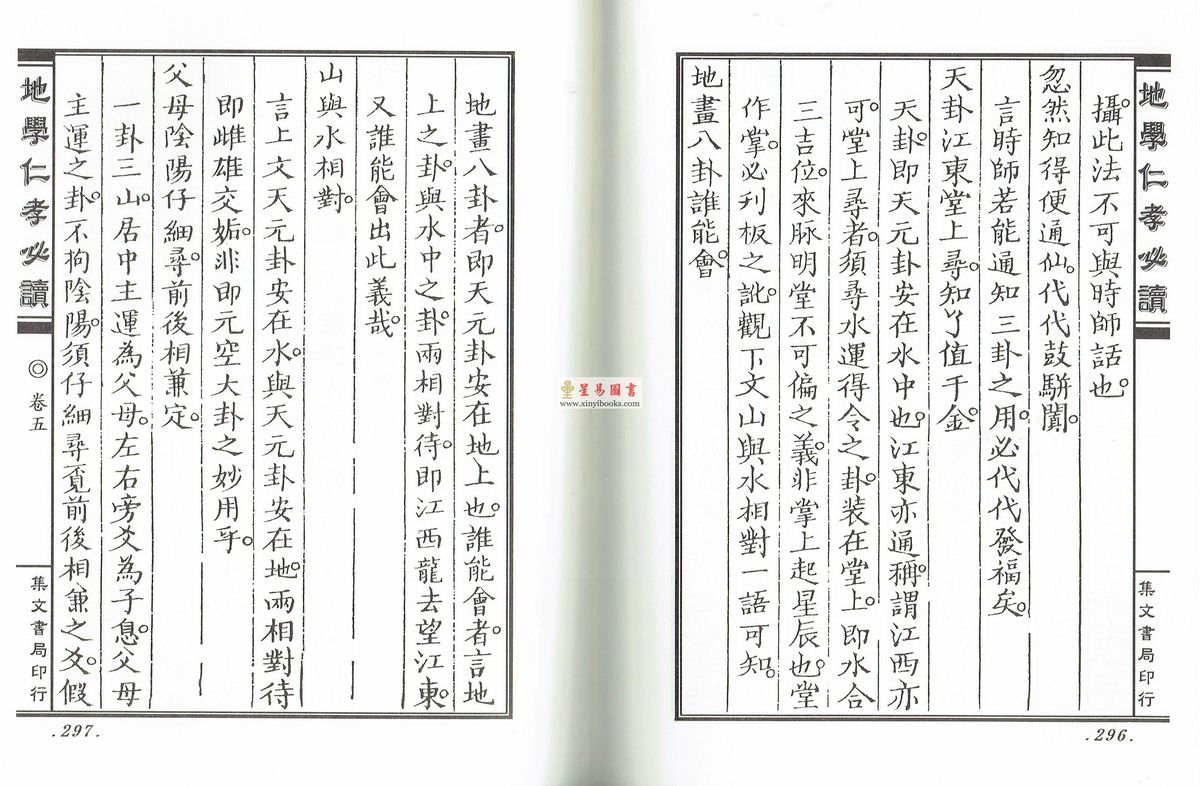 地學仁孝必讀
集文書局印行
攝此法不可與時師話也。
忽然知得便通仙。代代鼓駢闐。
言時師若能通知三卦之用。必代代發福矣。
天卦江東堂上尋。知了值千金。
天卦。即天元卦安在水中也。江東亦通稱。謂江西亦
可。堂上尋者。須尋水運得令之卦。裝在堂上。即水合
三吉位。來脉明堂不可偏之義。非掌上起星辰也。堂
作掌。必刋板之訛。觀下文山與水相對一語可知。
地畫八卦誰能會。
.296.
地畫八卦者。即天元卦安在地上也。誰能會者。言地
上之卦。與水中之卦。兩相對待。即江西龍去望江東。
又誰能會出此義哉。
山與水相對。
言上文天元卦安在水。與天元卦安在地。兩相對待
即雌雄交姤。非即元空大卦之妙用乎。
父母陰陽仔細尋。前後相兼定。
一卦三山。居中主運為父母。左右旁爻為子息。父母
主運之卦。不拘陰陽。須仔細尋覓前後相兼之爻。假
地學仁孝必讀
◎卷五
集文書局印行
.297.
星易圖書
www.xinyibooks.com